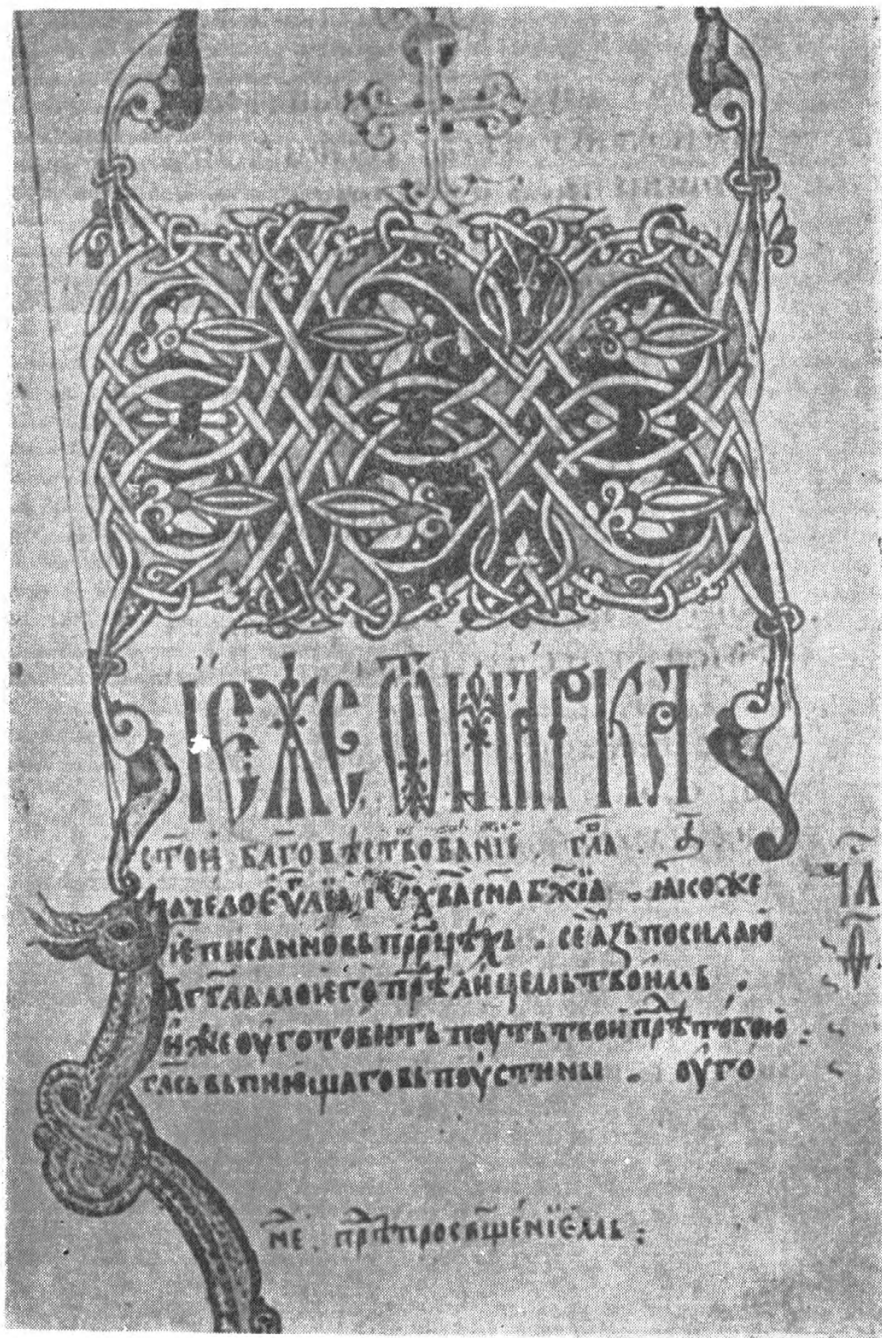 ІЄЖЕ Ѿ МАРКА
с҃той бл҃гов҄ѣствованїе . гл҃а . а҃
Начело еѵ҃лїа і҃ѵ х҃ва с҃на б҃жїа . ꙗкоже
ѥ писанно вь пр҃ѻцѣхь . се азь посилаю
агг҃ла моѥго прѣ҃ лицемь твоимь .
иже оуготовить поуть твои прѣ҃ тобою :
гла҃сь вьпиющаго вь поустыны . оуго
не҃ . прѣ҃ просв҃щенїемь :